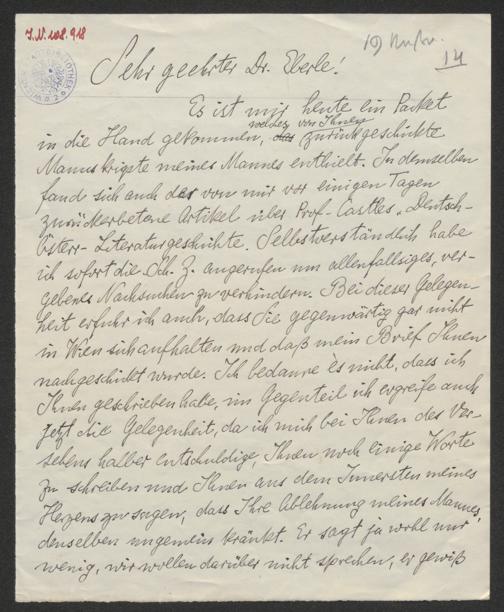 J.N. 408.918
14
Sehr geehrter Dr. Eberle!
Es ist mir heute ein Packet
welches von Ihnen
in die Hand gekommen, das zurückgeschickte
Manuskripte meines Mannes enthielt. In demselben
fand sich auch der von mir vor einigen Tagen
zurückerbetene Artikel über Prof. Castles „Deutsch-
österr- Literaturgeschichte. Selbstverständlich habe
ich sofort die Sch. Z. angerufen um allenfallsiges, ver-
gebenes Nachsuchen zu verhindern. Bei dieser Gelegen-
heit erfuhr ich auch, dass Sie gegenwärtig gar nicht
in Wien sich aufhalten und daß mein Brief Ihnen
nachgeschickt wurde. Ich bedaure es nicht, dass ich
Ihnen geschrieben habe, im Gegenteil ich ergreife auch
jetzt die Gelegenheit, da ich mich bei Ihnen des Ver-
sehens halber entschuldige, Ihnen noch einige Worte
zu schreiben und Ihnen aus dem Innersten meines
Herzens zu sagen, dass Ihre Ablehnung meines Mannes,
denselben ungemein kränkt. Er sagt ja wohl nur
wenig, wir wollen darüber nicht sprechen, er gewiß